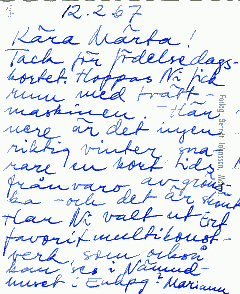 12.2.67
Kära Märta!
Tack för födelsedags-
kortet. Hoppas Ni fick
rum med tvätt-
maskinen - Här
nere är det ingen
riktig vinter sna
rare en kort tids
frånvaro av grön
ka - och det är skönt
Har Ni valt ut Ert
favoritmultikonst-
verk, som också
kan ses i Nämnd-
huset i Enhpg: Mariann
Foto: Bernt Johansson